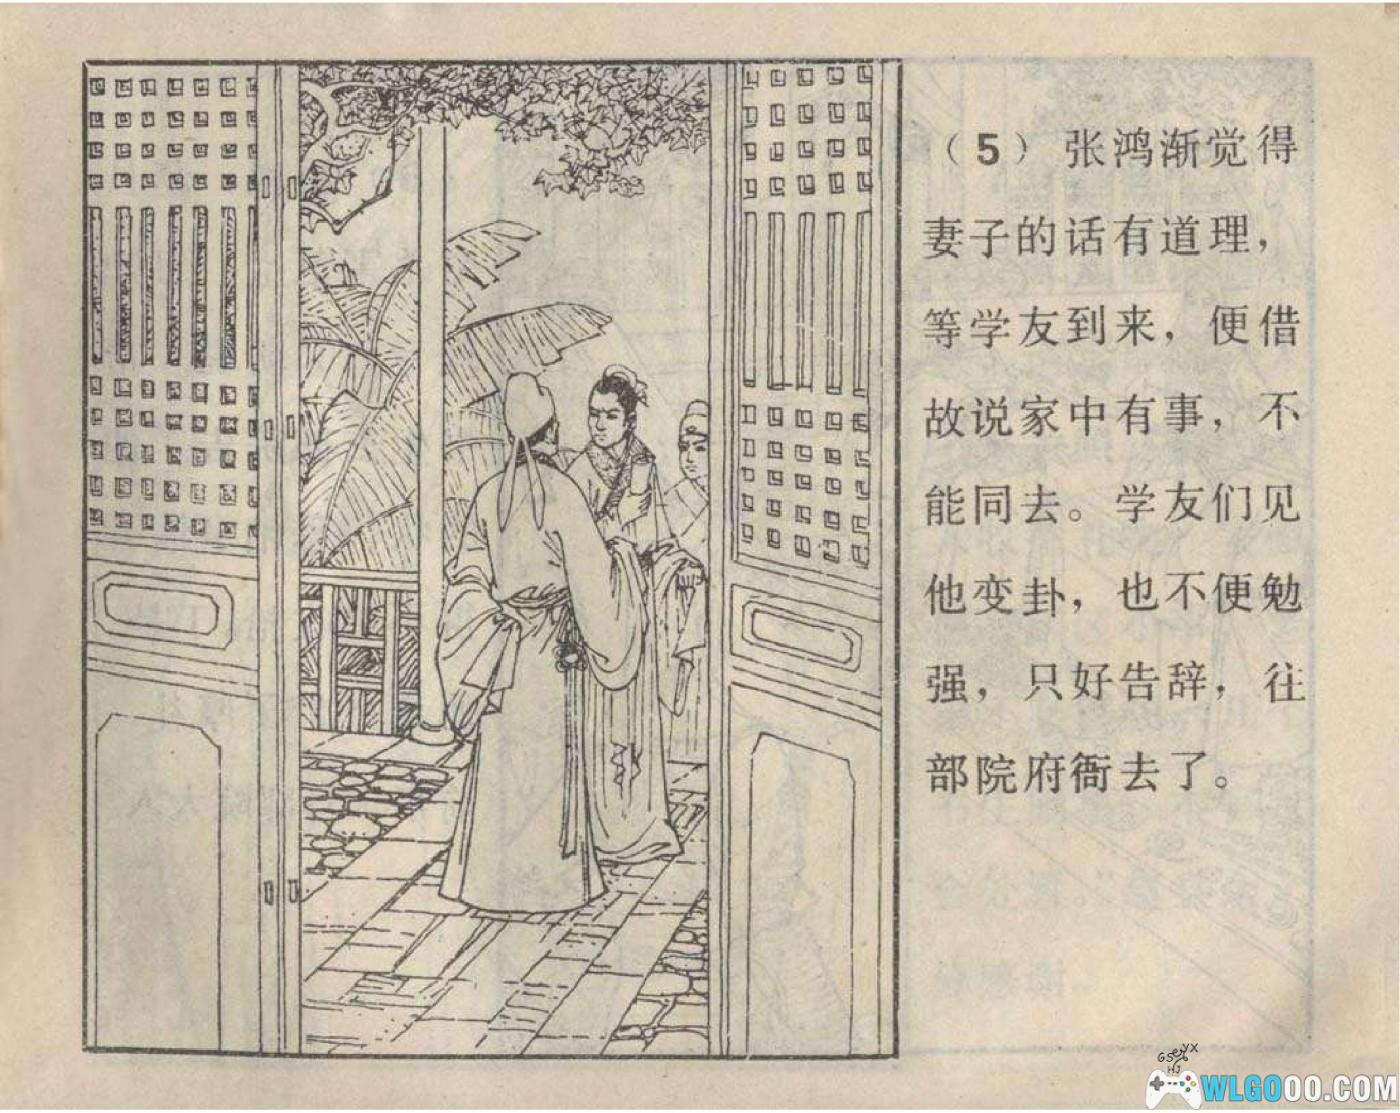 （5）张鸿渐觉得
妻子的话有道理，
等学友到来，便借
故说家中有事，不
能同去。学友们见
他变卦，也不便勉
强，只好告辞，往
部院府衙去了。
WLGOOO.COM